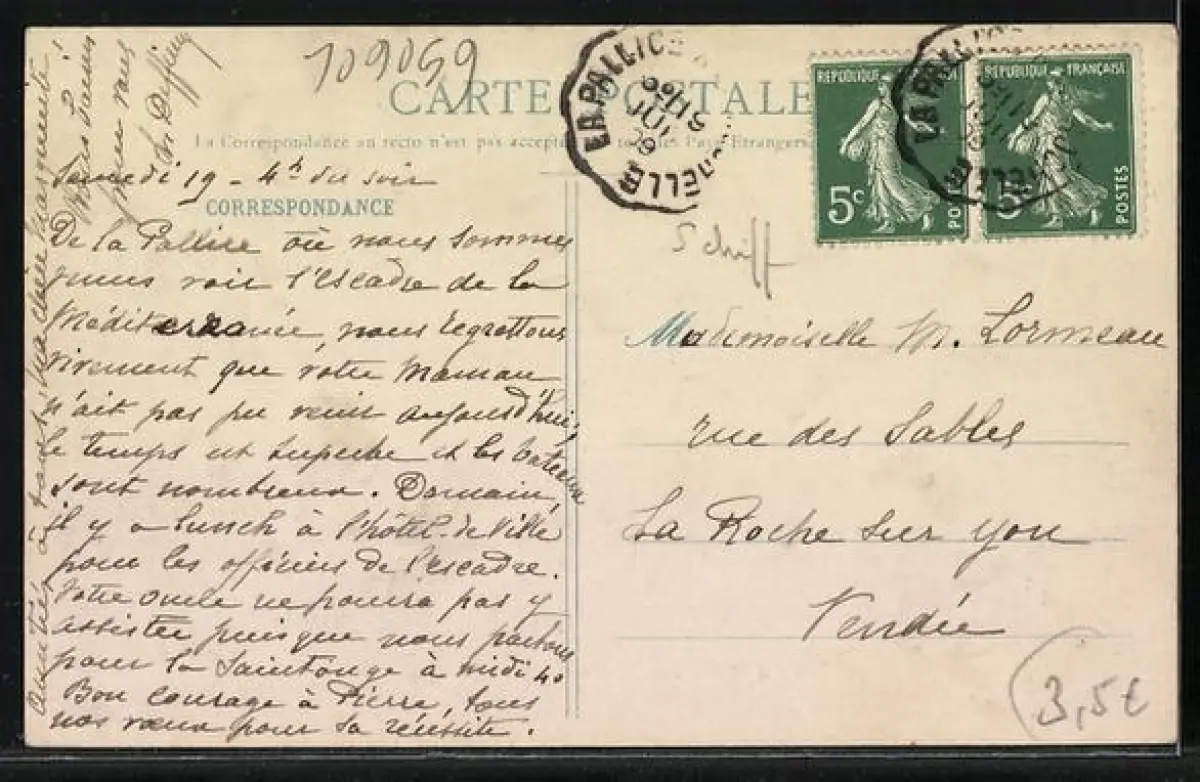 109059
CARTE POSTALE
La Correspondance au recto n'est pas acceptée par tous les Pays Etrangers
Samedi 19 - 4h du soir
CORRESPONDANCE
De la Pallice où nous sommes
venus voir l'escadre de la
Méditerranée, nous regrettons
vivement que votre Maman
n'ait pas pu venir aujourd'hui,
le temps est superbe et les bateaux
sont nombreux. Demain,
il y a lunch à l'hôtel-de-Ville
pour les officiers de l'escadre.
Votre oncle ne pourra pas y
assister puisque nous partons
pour la Saintonge à midi 40
Bon courage à Pierre, tous
nos vœux pour sa réussite.
Amitiés à tous, ma chère Marguerite!
Nous sommes
pour vous
LA PALLICE
ROCHELLE
REPUBLIQUE
5c
POSTES
LA PALLICE
REPUBLIQUE FRANÇAISE
5c
POSTES
Schiff
Mademoiselle M. Lormeau
rue des Sables
La Roche sur yon
Vendée
3,5€